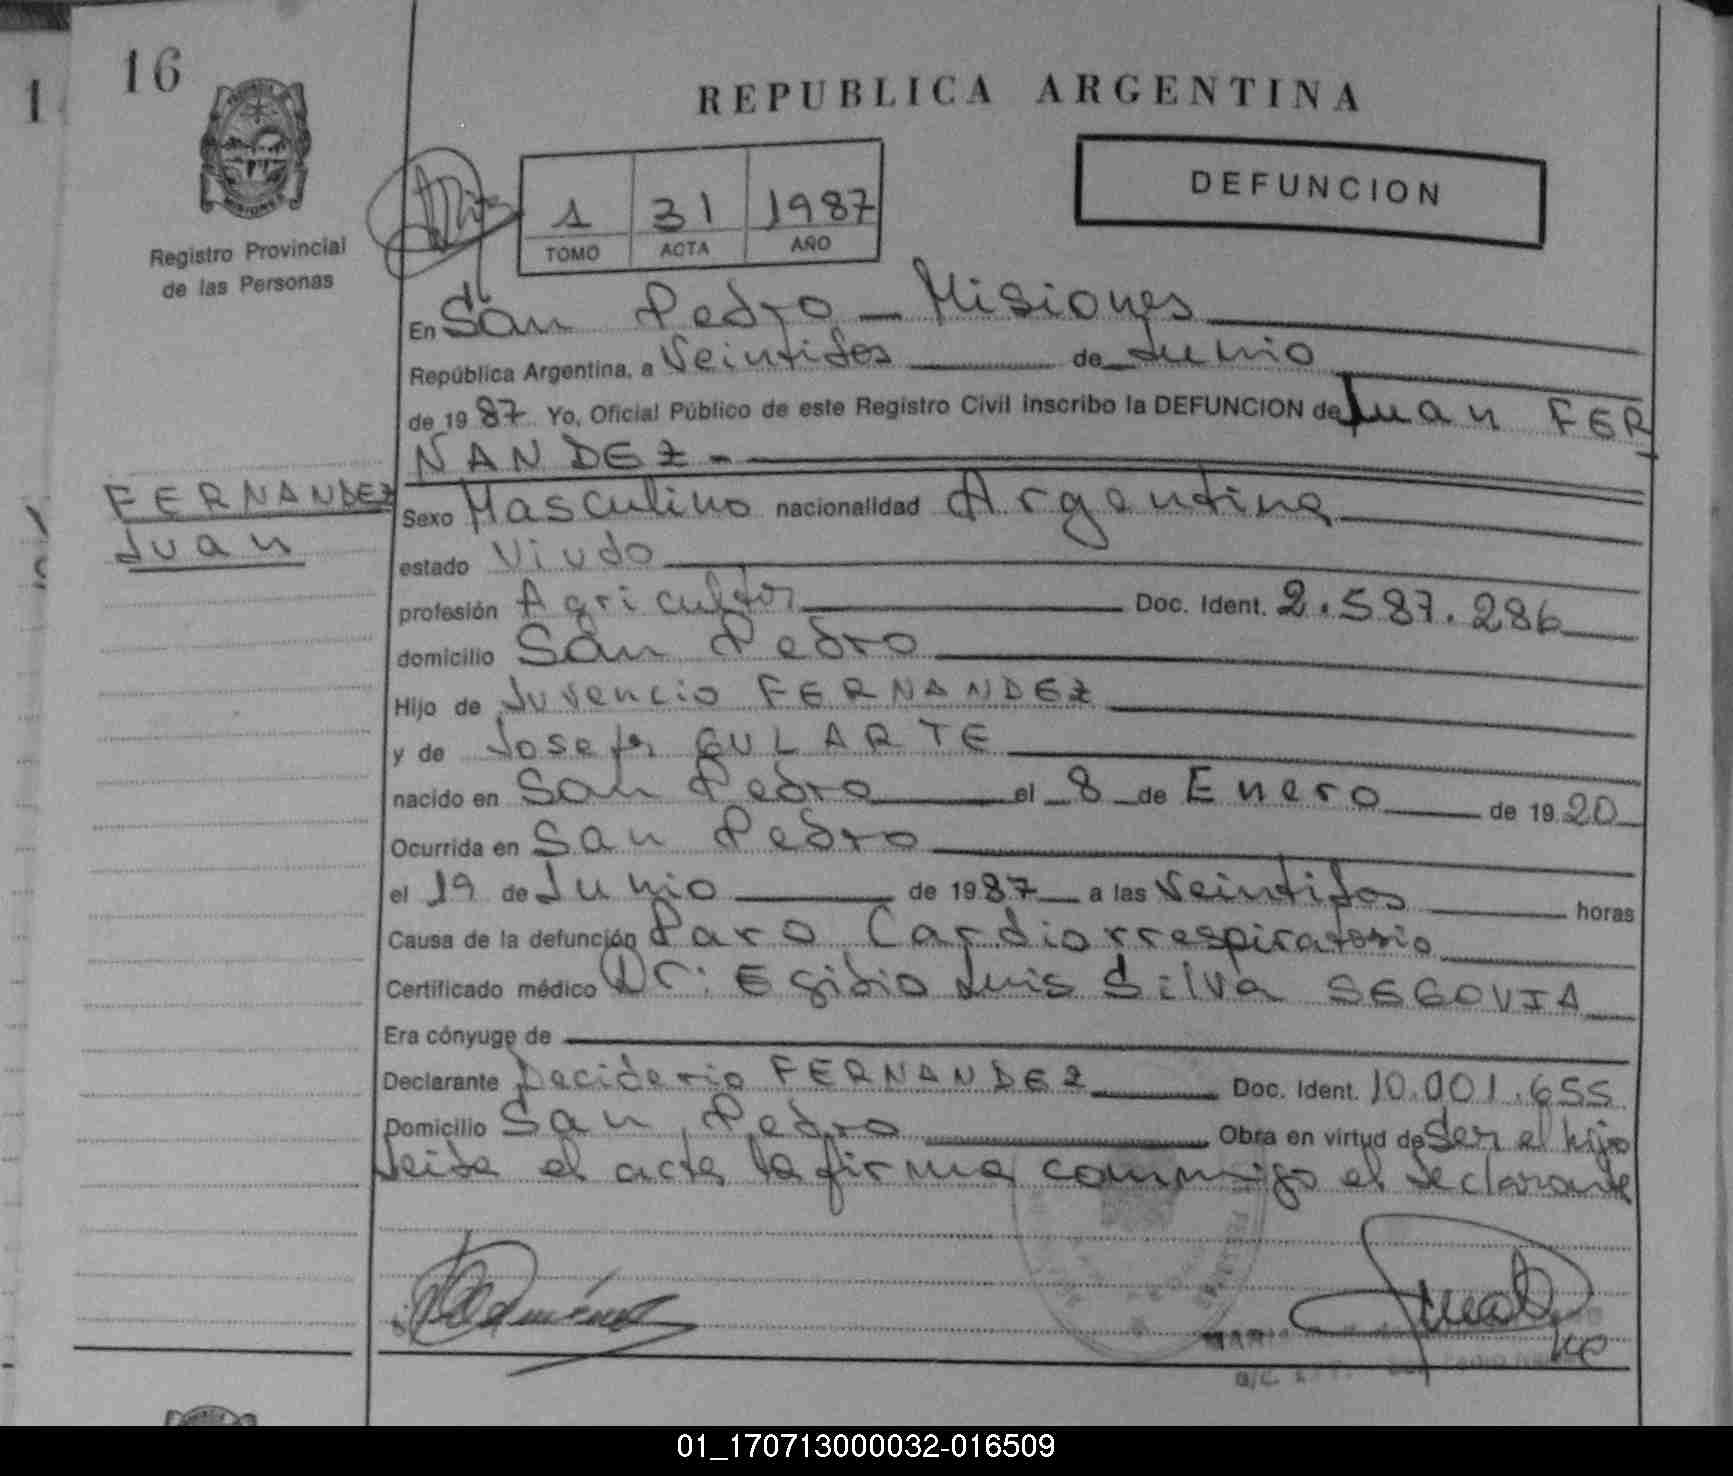 16
REPUBLICA ARGENTINA
DEFUNCION
1 31 1987
TOMO ACTA AÑO
MISIONES
Registro Provincial
de las Personas
En San Pedro - Misiones
República Argentina, a Veintidos de Junio
de 1987 Yo, Oficial Público de este Registro Civil Inscribo la DEFUNCION de Juan FER
NANDEZ.-
FERNANDEZ
Juan
Sexo Masculino nacionalidad Argentina
estado Viudo
profesión Agricultor Doc. Ident. 2.587.286
domicilio San Pedro
Hijo de Juvencio FERNANDEZ
y de Josefa GULARTE
nacido en San Pedro el 8 de Enero de 1920
Ocurrida en San Pedro
el 19 de Junio de 1987 a las Veintidos horas
Causa de la defunción Paro Cardiorrespiratorio
Certificado médico Dr: Egidio Luis Silva SEGOVIA
Era cónyuge de
Declarante Deciderio FERNANDEZ Doc. Ident. 10.001.655
Domicilio San Pedro Obra en virtud de Ser el hijo
Leida el acta la firma conmigo el declarante
01_170713000032-016509